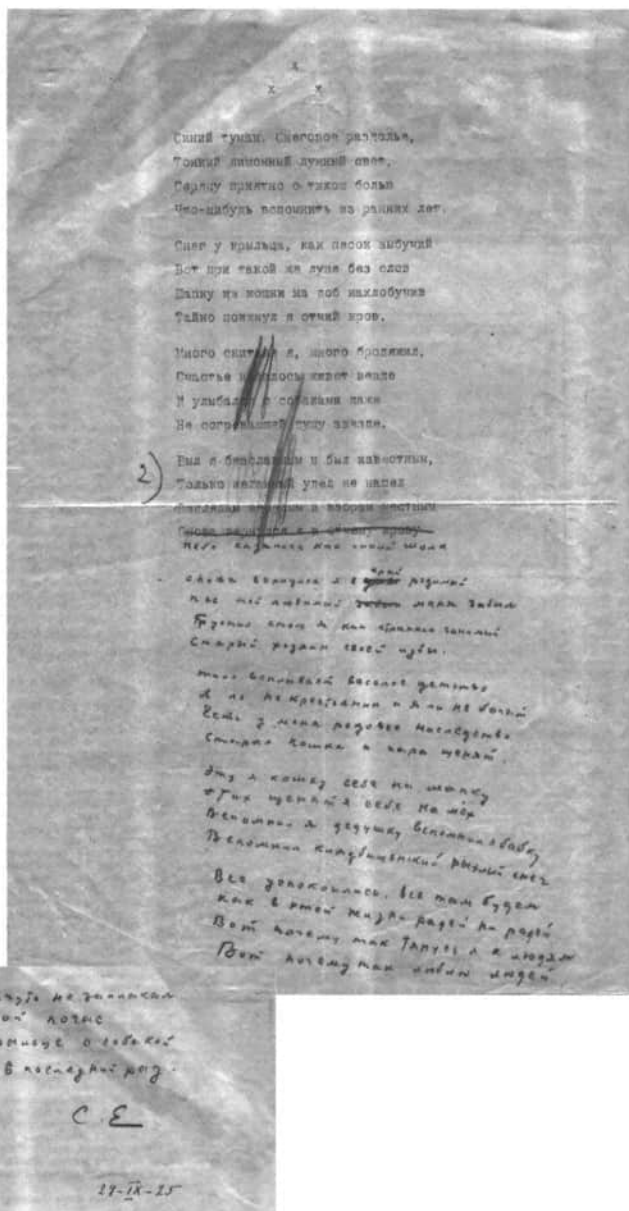 x
x x
Синий туман. Снеговое раздолье,
Тонкий лимонный лунный свет.
Сердцу приятно с тихою болью
Что-нибудь вспомнить из ранних лет.
Снег у крыльца, как песок зыбучий
Вот при такой же луне без слов
Шапку из кошки на лоб нахлобучив
Тайно покинул я отчий кров.
Много я, много бродяжил,
Счастье живет везде
И с собаками даже
Не душу звезде.
2)
Был я бесславным и был известным,
Только удел не нашел
и взорам местным
Снова вернулся я
как синий шолк
Снова вернулся я в край родимый
Кто мой любимый меня забыл
Грустно стою я как странник гонимый
Старый хозяин своей избы.
веселое детство
Я ль не крестьянин и я ли не богат
Есть у меня родовое наследство
Старая кошка и пара щенят.
Эту я кошку себе на шапку
Этих щенят я себе на мех
Вспомнил я дедушку вспомнил я бабку
Вспомнил кладбищенский рыхлый снег
Все успокоились. Все там будем
Как в этой жизни радей не радей
Вот почему так тянусь я к людям
Вот почему так люблю людей
не заплакал
погас
с собакой
в последний раз.
С. Е
29-IX-25